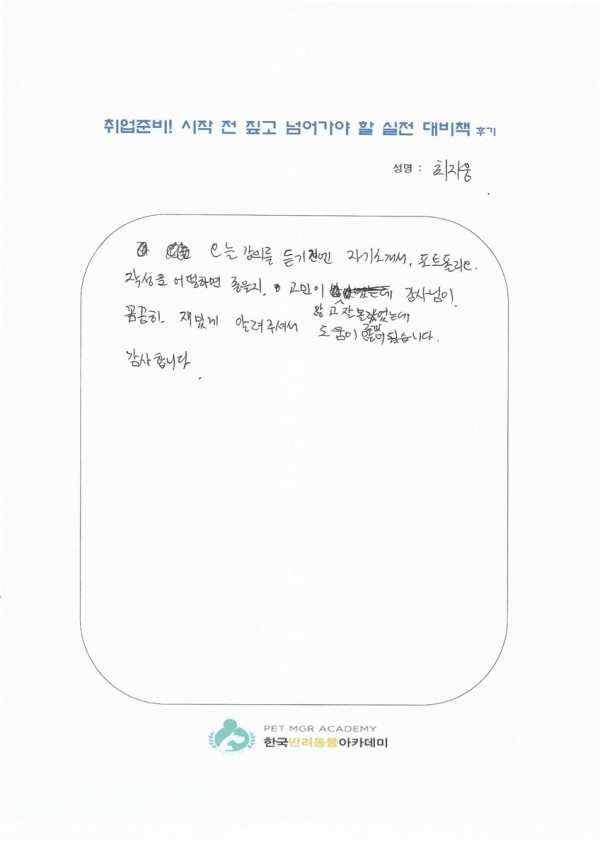 취업준비! 시작 전 짚고 넘어가야 할 실전 대비책 후기
성명 : 최지웅
오늘 강의를 듣기전엔 자기소개서, 포트폴리오
작성을 어떻하면 좋을지, 고민이 강사님이
많고 잘 몰랐었는데
꼼꼼히 재밌게 알려주셔서 도움이 되었습니다.
감사합니다.
PET MGR ACADEMY
한국반려동물아카데미